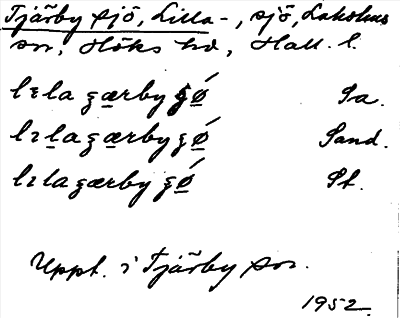 Tjärby sjö, Lilla -, sjö, Laholms
sn, Höks hd, Hall. l.
lɛla ʂærby ʂǿ Sa.
lɪla ʂærby ʂǿ Sand.
lɪla ʂærby ʂǿ St.
Uppt. i Tjärby sn.
1952.